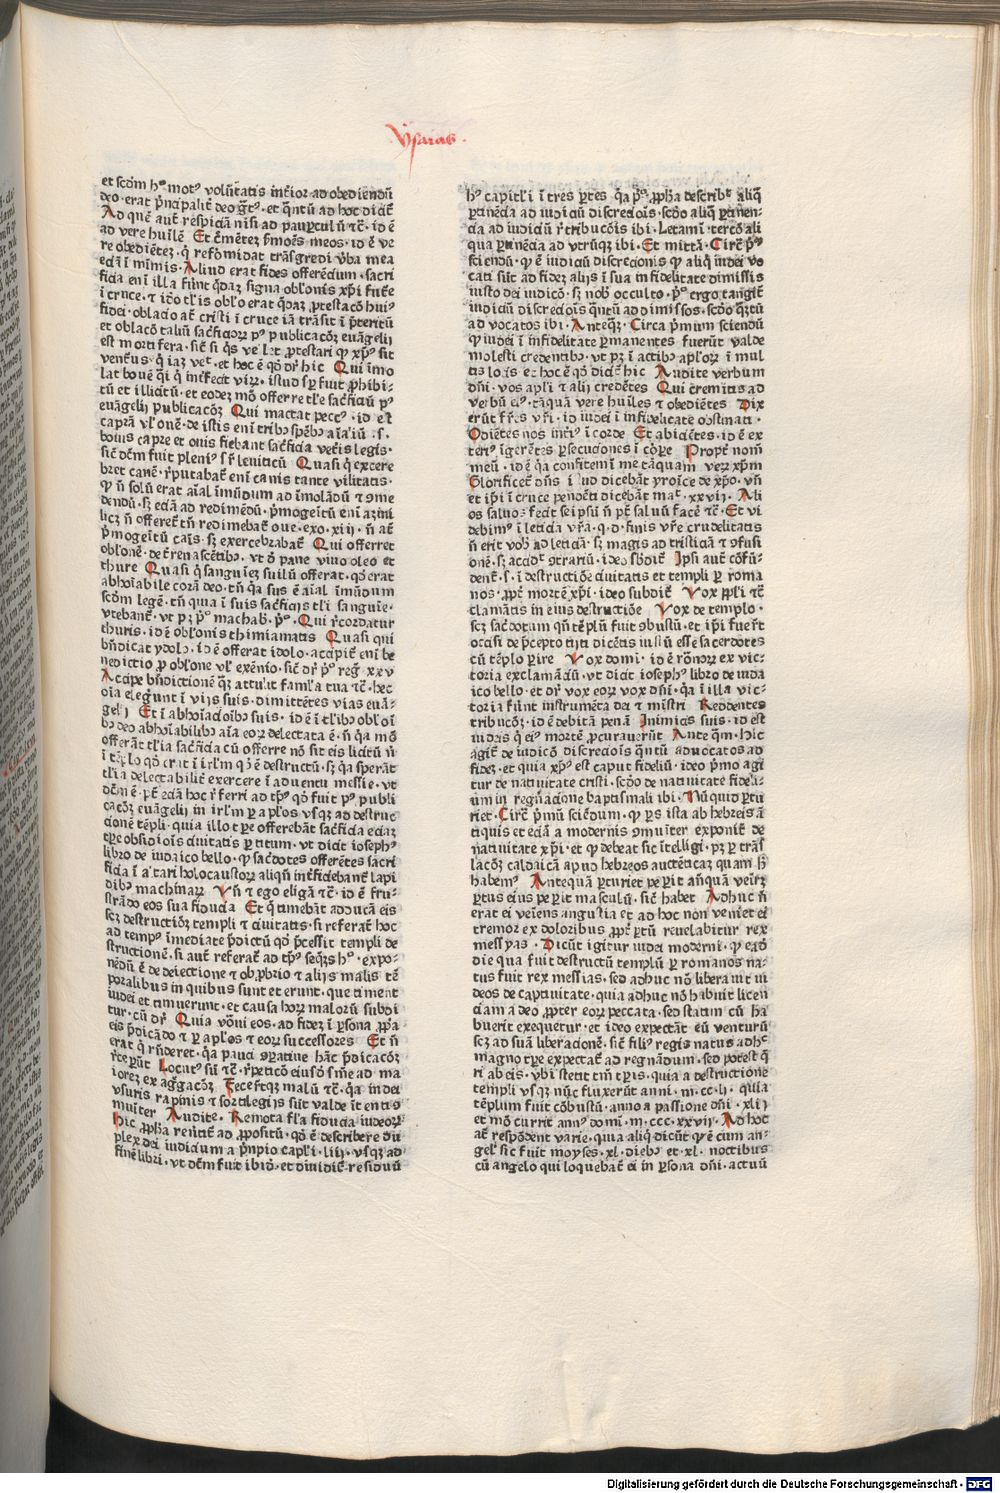 Ysaias.
et scdm hᵒ motꝰ volūtatis inťior ad obediendū
deo · erat pñcipalit̃ deo gᵃtꝰ · et q̃ntū ad hoc dicit̃
Ad quē aut̃ respiciā nisi ad paupculū ⁊c̃ · id ē
ad vere huīlē Et c̃mētez s̃moēs meos · id ē ve
re obediētez · q̇ reformidat trāsgredi ỽba mea
ecia ī mīmis · Aliud erat fides offerēcium · sacri
ficia enī illa fūnt q̃daz signa oblonis xp̄i fut̃e
ī cruce · ⁊ iō tlis oblo erat q̃daz ꝓtestacō huiꝰ
fidei · oblacio at̃ cristi ī cruce iā trāsit ī p̃teritū
et oblacō taliū sac̃ficioꝝ pꝰ publicacōz euāgelij
est mortifera · sic̃ si q̇s vellet ꝓtestari ꝙ xp̄s sit
ventuꝰ · q̇ iaz vēt · et hoc ē qd̃ dr̃ hic Qui īmo
lat bouē q̃i q̇ int̃ficit virꝝ · istud sp̃ fuit ꝓhibi-
tū et illicitū · et eodez mō offerre tl̃e sac̃ficiū pꝰ
euāgelij publicacōz Qui mactat peccꝰ · id est
caprā vl̃ onē · de istis eni tribꝰ sp̃ebꝰ aīaliū · s ·
bouis capre et ouis fiebant sac̃ficia vet̃is legis ·
sic̃ dc̃m fuit pleniꝰ sr̃ leuiticū Quasi q̇ excere
bret canē · r̃putabat̃ eni canis tante vilitatis ·
ꝙ ñ solū erat aīal īmūdum ad īmolādū ⁊ ꝯme
dendū · sz eciā ad redimēdū · p̃mogeītū eni asini
licz ñ offeret̃ tñ redimebat̃ oue · exo · xiij · ñ at̃
p̃mogeītū caīs · sz excerebrabat̃ Qui offerret
oblonē · de t̃renascētibꝰ · vt ō pane viuo oleo et
thure Quasi q̇ sanguīez suillū offerat · qd̃ erat
abhoīabile corā deo · tñ q̃a sus ē aīal īmūdum
scdm legē · tñ quia ī suis sac̃ficijs tl̃i sanguīe ·
vtebant̃ · vt pz pꝰ machab · pꝰ · Qui r̃cordatur
thuris · id ē oblonis thimiamatis Quasi qui
bñdicat ydolo · id ē offerat idolo · accipit̃ eni be
nedictio ꝓ oblone vl̃ exenio · sic̃ dr̃ pꝰ reg̃ · xxv
Accipe bñdictionē q̃z attulit famĺa tua ⁊c̃ · hec
oīa elegr̃unt ī vijs suis · dimittētes vias euā-
gelij Et ī abhoīacioībꝰ suis · id ē ī tl̃ibꝰ oblōi
bꝰ deo abhoīabilibꝰ aīa eoꝝ delectata ē · ñ q̃a mō
offerāt tl̃ia sac̃ficia cū offerre nō sit eis licitū ñ
ī tēplo qd̃ erat ī irl̃m qd̃ ē destructū · sz q̃a sperāt
tl̃ia delectabilit̃ exercere ī aduentu messie · vt
dc̃m ē · pt̃ eciā hoc r̃ferri ad tp̄ꝰ qd̃ fuit pꝰ publi
cacōz euāgelij in irl̃m per apl̃os vsqz ad destruc
cionē tēpli · quia illo tp̄e offerebāt sac̃ficia eciaz
tp̄e obsidiōis ciuitatis per titum · vt dicit iosephꝰ
libro de iudaico bello · ꝙ sac̃dotes offerētes sacri
ficia ī altari holocaustoꝝ aliqñ int̃ficiebant̃ lapi
dibꝰ machinaꝝ Vñ ⁊ ego eligā ⁊c̃ · id ē fru-
strādo eos sua fiducia Et q̇ timebāt adducā eis
scz destructiōz templi ⁊ ciuitatis · si referat̃ hoc
ad tempꝰ īmediate p̃dictū qd̃ p̃cessit templi de
structionē · si aut̃ referat̃ ad tp̄ꝰ seq̃ns hᵒ · expo-
nēdū ē de deiectione ⁊ obꝓbrio ⁊ alijs malis tē
poralibus in quibus sunt et erunt · que timent
iudei et timuerunt · et causa hoꝝ maloꝝ subdi
tur · cū dr̃ Quia vōui eos · ad fidez ī p̃sona ꝓp̃a
eis p̃dicādo ⁊ per apl̃os ⁊ eoꝝ successores Et ñ
erat q̇ rñderet · q̃a pauci ꝯparatiue hāc p̃dicacōz
r̃ceperūt Locutꝰ sū ⁊c̃ · r̃peticō eiusd̃ sñie ad ma
iorez exagg̃acōz Feceřtqz malū ⁊c̃ · q̃a iudei
vsuris rapinis ⁊ sortilegijs sūt valde ītentis
muīter Audite · Remota fl̃a fiducia iudeoꝝ
hic ꝓpha reūtit̃ ad ꝓpositū · qd̃ ē describere du
plex dei iudicium a p̃npio capĺi · liij · vsqz ad
finē libri · vt dc̃m fuit ibid̃ · et diuidit̃ residuū
hꝰ capitl̃i ī tres partes q̃a pꝰ ꝓpha describit aliq̃
ptinēcia ad iudiciū discrecōis · scd̃o aliq̃ ptinen-
cia ad iudiciū r̃tribucōis ibi · Letamī · terco ali
qua ptinēcia ad vtrūqz ibi · Et mittā · Circ̃ pꝰ
sciendū · ꝙ ē iudiciū discrecionis ꝙ aliq̇ iudei vo
cati sūt ad fidez alijs ī sua infidelitate dimissis
iusto dei iudicō · sz nob̃ occulto · pꝰ ergo tangit̃
iudiciū discrecōis q̃ntū ad dimissos · scd̃o q̃ntū
ad vocatos ibi · Anteqz · Circa p̃mium sciendū
ꝙ iudei ī infidelitate p̃manentes fuerūt valde
molesti credentibꝰ · vt pz ī actibꝰ apl̃oꝝ ī mul
tis locis et hoc ē qd̃ dicit̃ hic Audite verbum
dñi · vos apl̃i ⁊ alij credētes Qui tremitis ad
verbū eiꝰ · tāquā vere huiles ⁊ obediētes Dix
erūt fr̃es vr̃i · id iudei ī infidelitate obstinati ·
Odiētes nos int̃iꝰ ī corde Et abiciētes · id ē ex
teriꝰ īgerētes persecuciones ī cor̃pe Propt̃ nom̃
meū · id ē q̃a confitemī me tāquam veꝝ xp̄m
Glorificet̃ dñs illud dicebāt yroīce de xp̄o · vñ
et ip̃i ī cruce penoeti dicebāt matᶜ · xxvij · Ali
os saluos fecit seip̃sū ñ pt̃ saluū facē ⁊c̃ · Et vi
debimꝰ ī leticia vr̃a · q · d · finis vr̃e crudelitatis
ñ erit vob̃ ad leticiā · sz magis ad tristiciā ⁊ ꝯfusi
onē · sz accid̃t ꝯtrariū · ideo sbdit̃ Ip̃i aut̃ cōfū-
dent̃ · s · ī destructiōe ciuitatis et templi per roma
nos · ꝓpt̃ mortē xp̄i · ideo subdit̃ Vox ppl̃i ⁊c̃
clamātis in eius destructiōe Vox de templo ·
scz sac̃dotum qñ tēplū fuit ꝯbustū · et ip̃i fueřt
occisi de p̃cepto titi dicētis iustū esse sacerdotes
cū tēplo perire Vox domi · id ē r̃ōnoꝝ ex vic-
toria exclamāciū · vt dicit iosephꝰ libro de iuda
ico bello · et dr̃ vox eoꝝ vox dñi · q̃a ī illa vic-
toria fūnt instrumēta dei ⁊ mīstri Reddentes
tribucōz · id ē debitā penā Inimicis suis · id est
iudeis q̇ eiꝰ mortē ꝓcurauerūt Ante qm̃ · hic
agit̃ de iudicō discrecōis q̃ntū aduocatos ad
fidez · et quia xp̄s est caput fideliū · ideo p̃mo agi
tur de natiuitate cristi · scd̃o de natiuitate fideli-
um in regñacione baptismali ibi · Nūquid pertu
riet · Circ̃ p̃mū sciēdum · ꝙ per ista ab hebreis ā
tiquis et eciā a modernis ꝯmuniter exponit̃ de
natiuitate xp̄i · et ꝙ debeat sic ītelligi · pz per trās
lacōz caldaicā apud hebreos autēticaz quam sꝫ
habemꝰ Antequā perturiet peperit an̄quā veīrꝫ
pertus eiꝰ peperit masculū · sic̃ habet Adhuc ñ
erat ei veīens angustia et ad hoc non veniet ei
tremor ex doloribus ꝓpt̃ pertū reuelabitur rex
messyas · Dicūt igitur iudei moderni · ꝙ eadē
die qua fuit destructū templū per romanos na-
tus fuit rex messias · sed adhuc nō liberauit iu
deos de captiuitate · quia adhuc nō habuit licen
ciam a deo · ꝓpter eoꝝ peccata · sed statim cū ha
buerit exequetur · et ideo expectāt eū venturū
scz ad suā liberacionē · sic̃ filiꝰ regis natus adhᶜ
magno tp̄e expectat̃ ad regnādum · sed potest q̃
ri ab eis · vbi stetit tm̃ tp̄ris · quia a destructione
templi vsqz nūc fluxerūt anni · m · cc · lj · quia
tēplum fuit cōbustū · anno a passione dñi · xlij
et mō currit annꝰ domī · m · ccc · xxvij · Ad hoc
at̃ respōdent varie · quia aliq̇ dicūt ꝙ ē cum an-
gelꝰ sic̃ fuit moyses · xl · diebꝰ et · xl · noctibus
cū angelo qui loquebat̃ ei in persona dñi · actuū
Digitalisierung gefördert durch die Deutsche Forschungsgemeinschaft - DFG